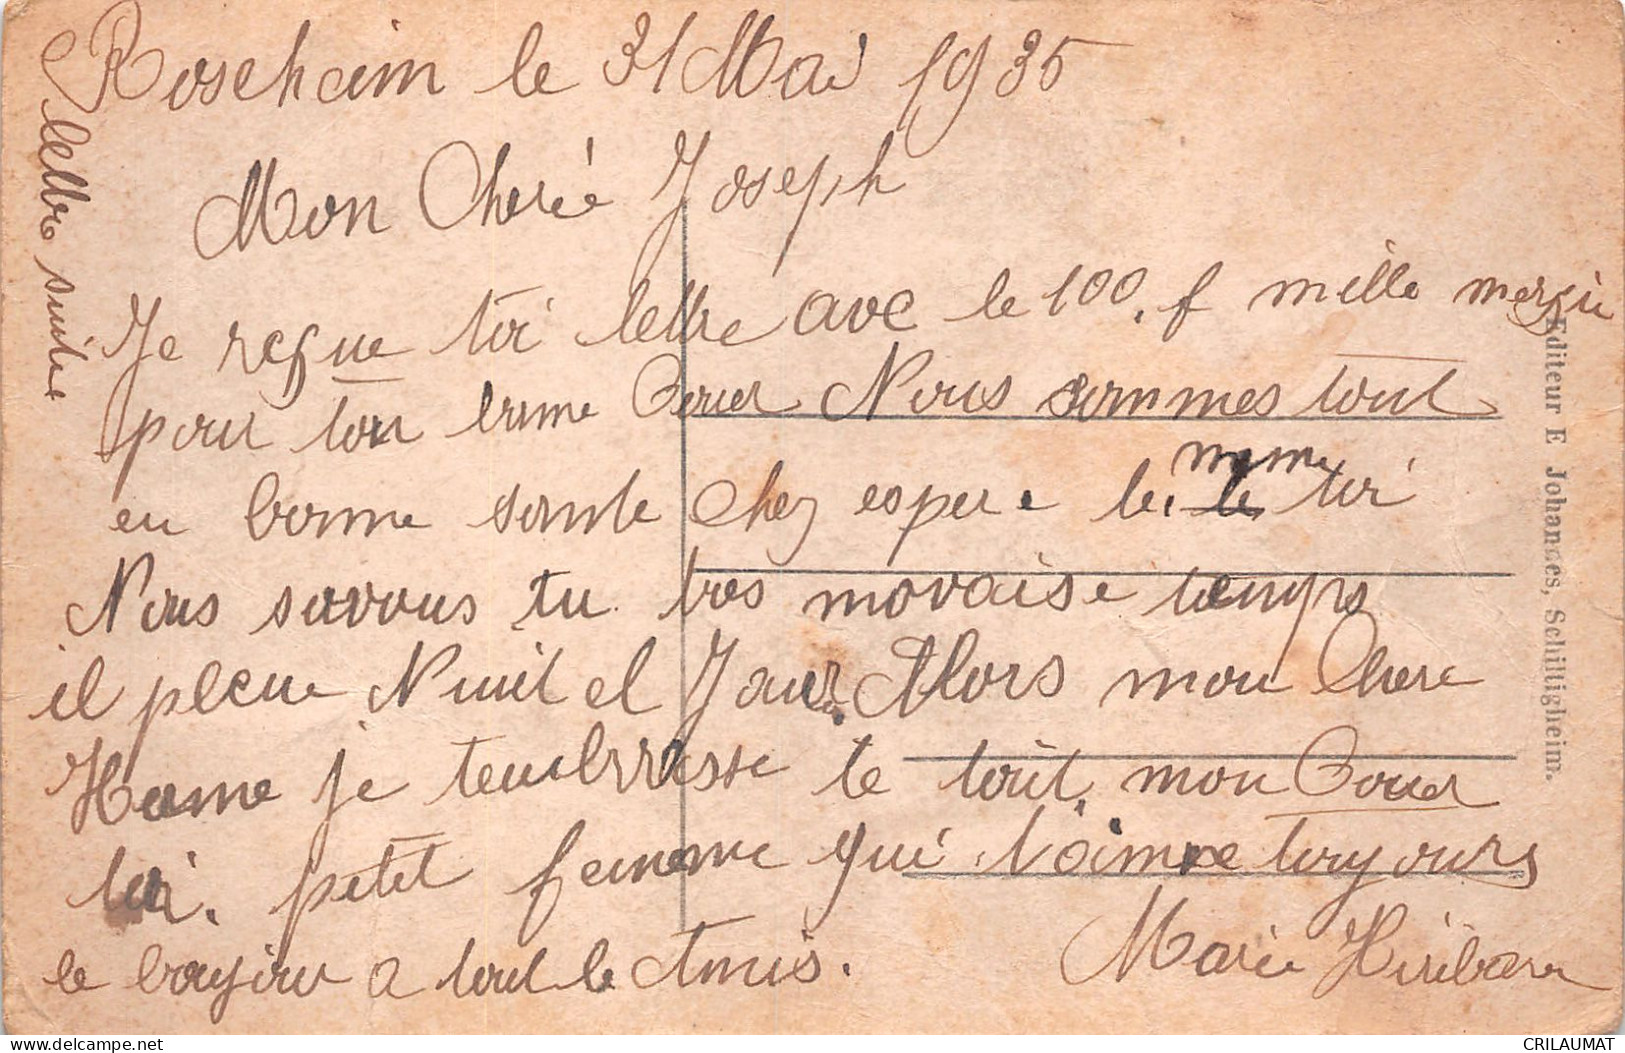 Roseheim le 31 Mai 1935
Mon Cherié Joseph
Je resue toi lettre ave le 100. f mille mercie
pour ton bonne Cœur Nous sommes tout
en bonne sante chez espere le. meme toi
Nous savons tu tres movaise temps
il pleeue Nuit et Jour. Alors mon Chere
Home je tembrrasse te tout. mon Cœur
toi. petit femme qui t'aimee toujours
le bonjour a tout le Amis. Marie Hiribarn
lettre suite
Editeur E Johannes, Schiltigheim.
CRILAUMAT